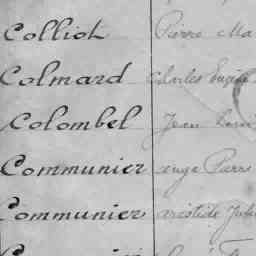 Colliot Pierre Ma
Colmard Charles Eugène
Colombel Jean Louis
Communier ange Pierre
Communier aristide Jules